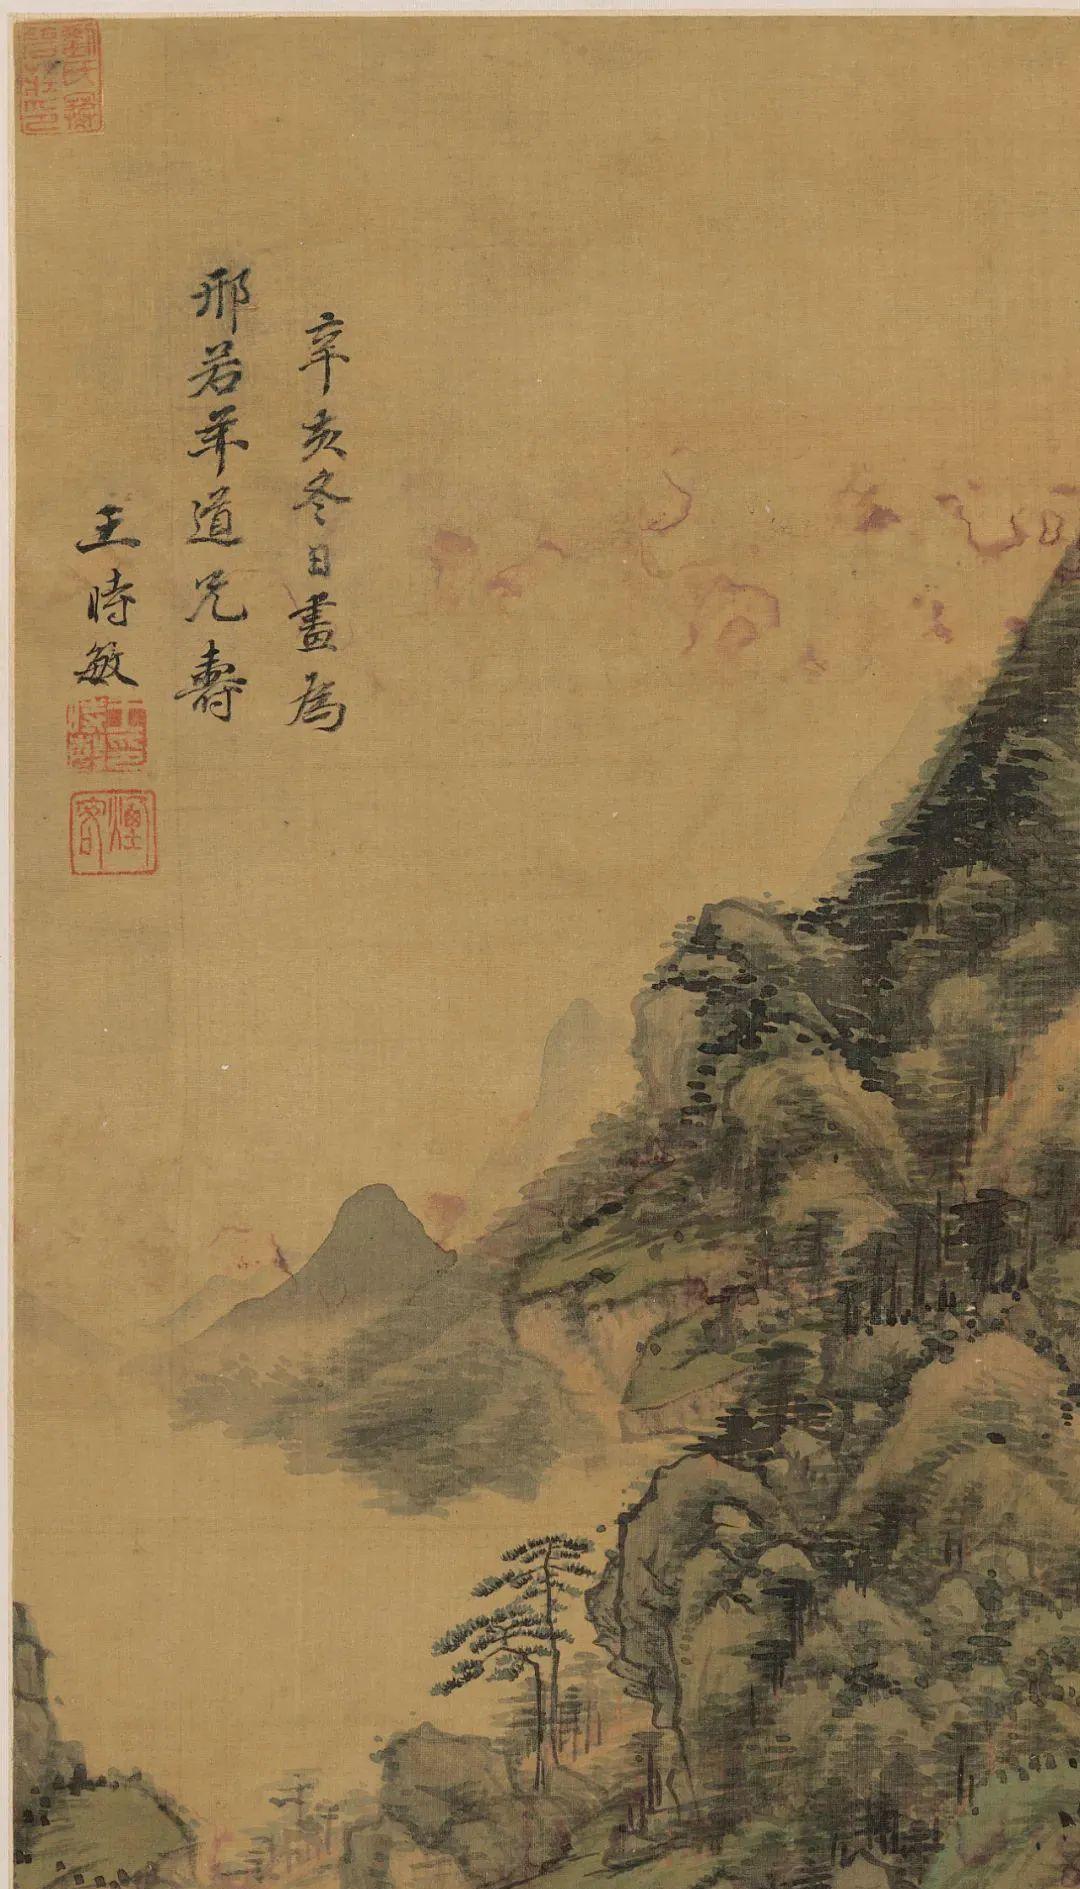 辛亥冬日畫為
邢若年道兄壽
王時敏
煙客